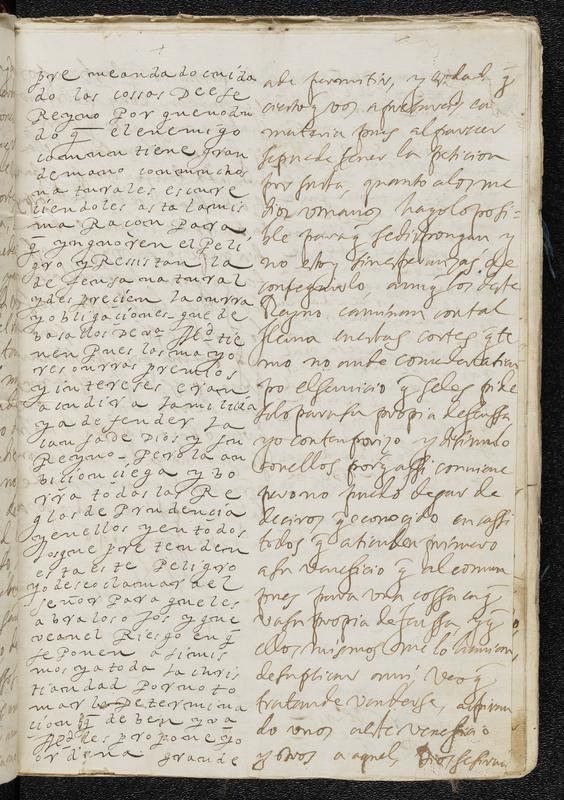 pre meanda do cuida
do las cossas Deese
Reyno Por quenodu
do q̄ el enemigo
comun tiene gran
demano conmuchos
naturales escure
ciendoles asta lamis
ma Raçon Para
q̄ ynynoren el Peli
gro y Ressistan la
defensa natural
y desprecien laonrra
y obligaciones que de
basallos De
nen Pues las mayo
res onrras premios
y intereses eran
acudir a la milicia
ya defender la
caussa de Dios y su
Reyno. Pero la an
bicion ciega y bo
rra todas las Re
glas de Prudencia
y enellos y en todos
los que pre tenden
esta este Peligro
yo deseo clamar al
señor Para que les
abra los ojos y que
vean el Riesgo en q̄
se Ponen a si mis
mos ya toda la chris
tiandad Por no to
mar la Determina
cion q̄ deben yva
les propone yo
ordinia grande
a de permitir, y
cierto q̄ vos en
materia pues al parecer
se puede tener la peticion
por justa, quanto a los me
dios vmanos hagolo posi-
ble para q̄ se dispongan y
no estoy sin esperanzas de
conseguirlo, aunq̄ los deste
Reyno caminan con tal
flema en estas cortes q̄ te
mo no an de conceder a tiem
po el seruicio q̄ se les pide
solo para su propia defenssa
yo contemporizo y disimulo
con ellos porq̄ assi conuiene
pero no puedo dejar de
deciros q̄ e conocido en cassi
todos q̄ atienden primero
a su veneficio q̄ al comun
pues para vna cossa en q̄
va su propia defenssa, y q̄
ellos mismos me lo hauian
de suplicar a mi, veo q̄
tratan de venderse, aspiran
do vnos a este veneficio
y otros a aquel, Dios se sirua